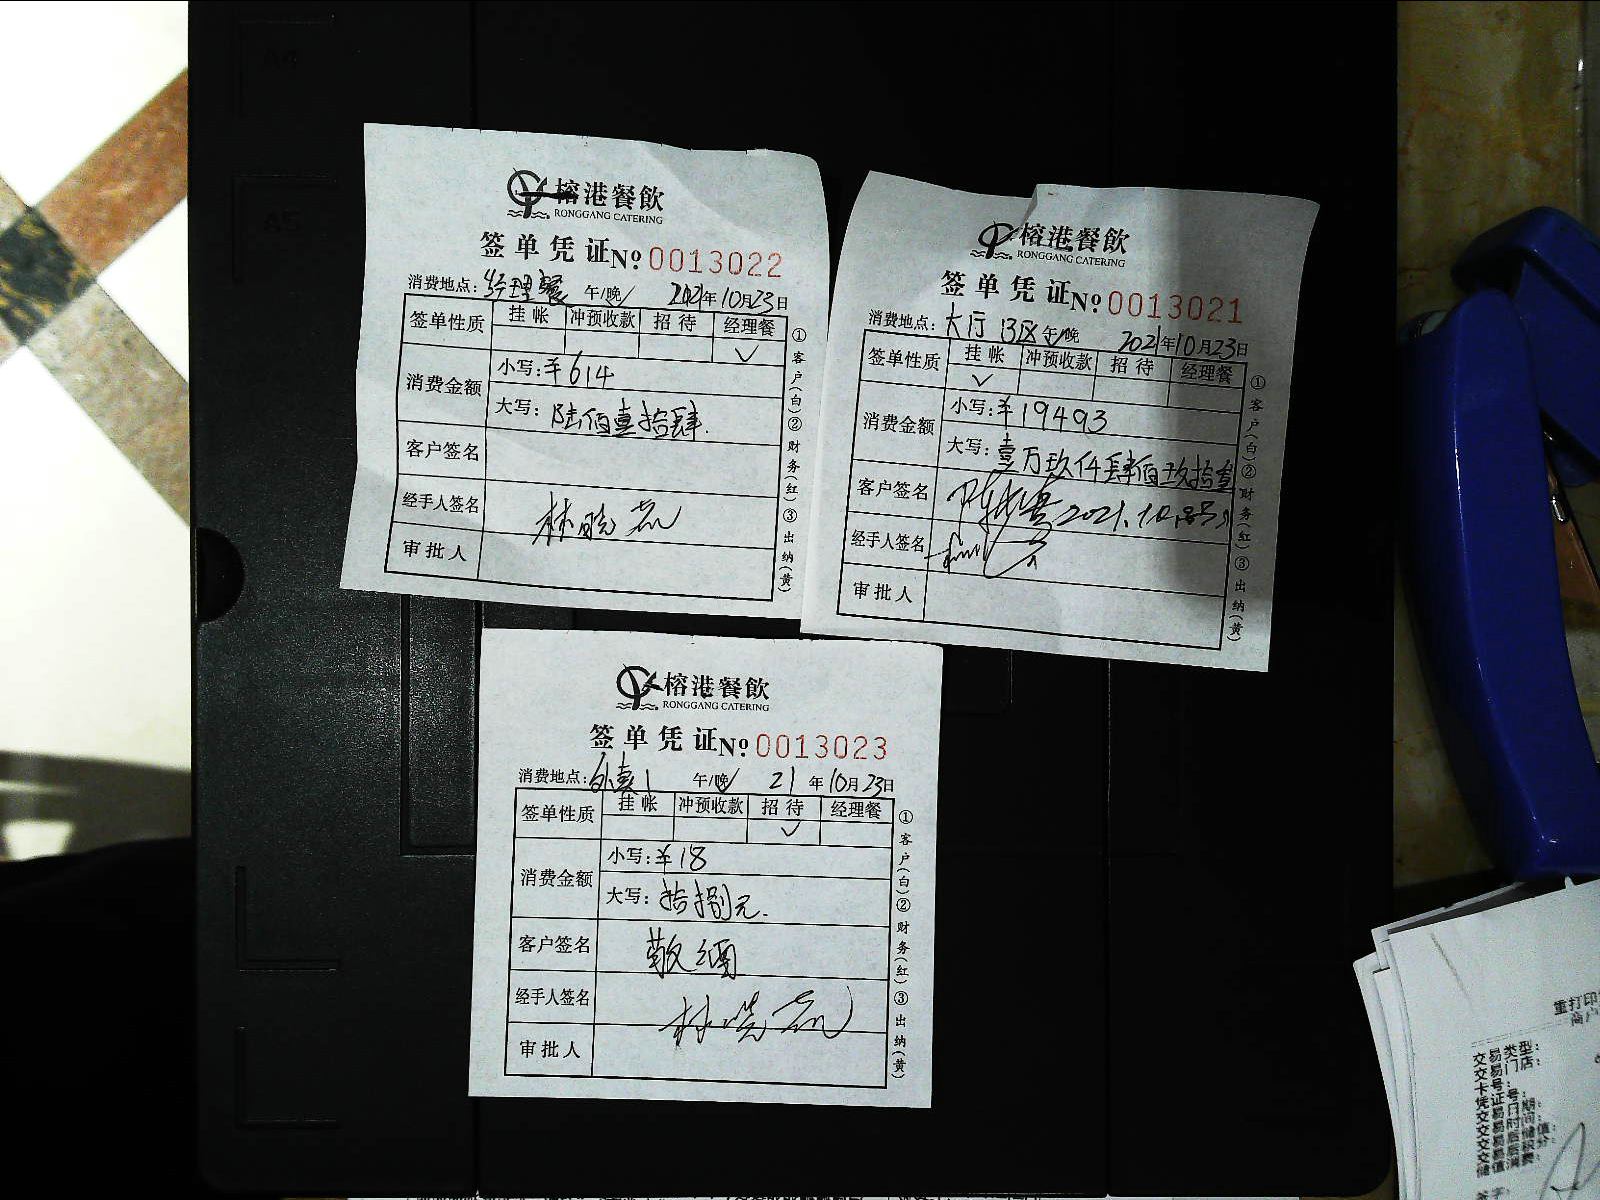 A4
A5
榕港餐飲
RONGGANG CATERING
签单凭证 № 0013022
消费地点：经理餐 午/晚√ 2021年10月23日
签单性质 挂帐 冲预收款 招待 经理餐
√
消费金额
小写：¥614
大写：陆佰壹拾肆.
客户签名
经手人签名 林晓
审批人
①客户(白)②财务(红)③出纳(黄)
榕港餐飲
RONGGANG CATERING
签单凭证 № 0013021
消费地点：大厅13区 午√/晚 2021年10月23日
签单性质 挂帐 冲预收款 招待 经理餐
√
消费金额
小写：¥19493
大写：壹万玖仟肆佰玖拾叁
客户签名 2021.10.
经手人签名
审批人
①客户(白)②财务(红)③出纳(黄)
榕港餐飲
RONGGANG CATERING
签单凭证 № 0013023
消费地点：外卖1 午/晚√ 21年10月23日
签单性质 挂帐 冲预收款 招待 经理餐
√
消费金额
小写：¥18
大写：拾捌元.
客户签名 敬酒
经手人签名 林晓
审批人
①客户(白)②财务(红)③出纳(黄)
重打印
商户
交易类型：
交易门店：